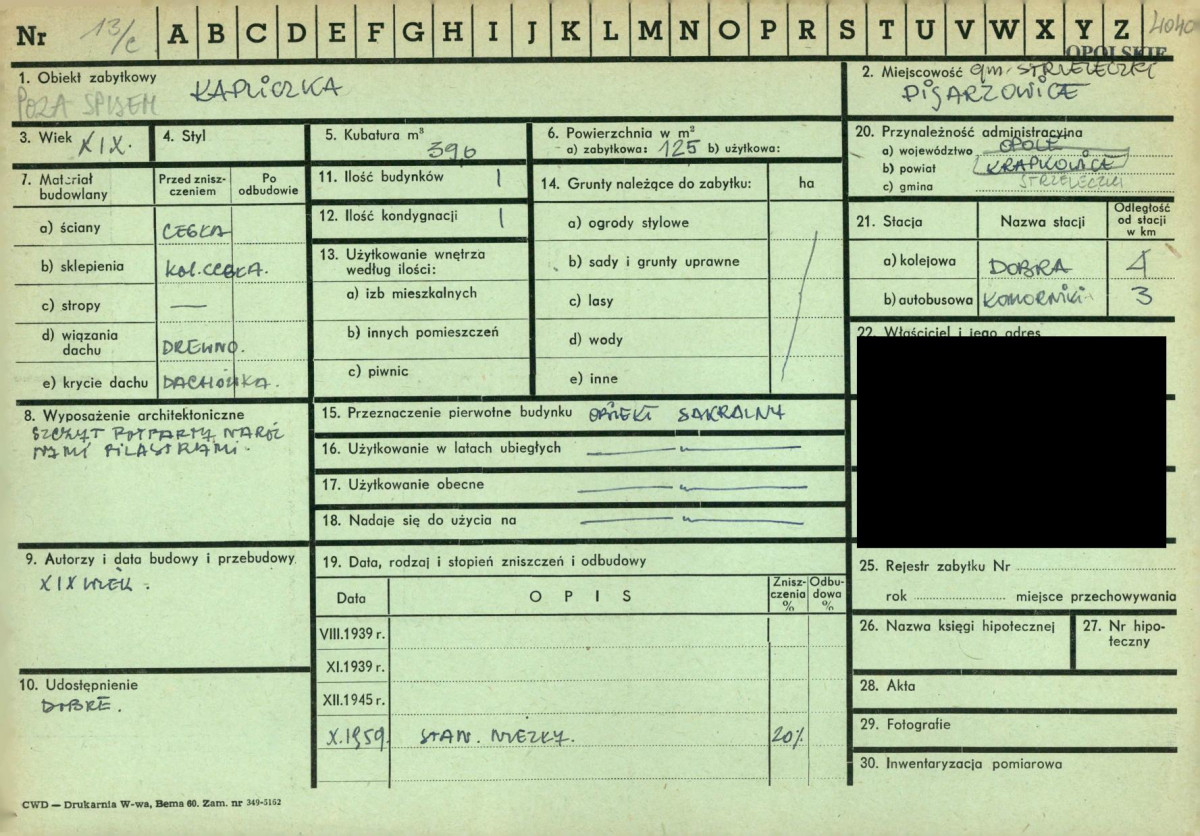 Nr 13/c A B C D E F G H I J K L M N O P R S T U V W X Y Z 4040
OPOLSKIE
1. Obiekt zabytkowy KAPLICZKA
POZA SPISEM
2. Miejscowość gm. STRZELECZKI
PISARZOWICE
3. Wiek XIX.
4. Styl
5. Kubatura m³
390
6. Powierzchnia w m²
a) zabytkowa: 125 b) użytkowa:
20. Przynależność administracyjna
a) województwo OPOLE
b) powiat KRAPKOWICE
c) gmina STRZELECZKI
7. Materiał budowlany
Przed zniszczeniem
Po odbudowie
a) ściany CEGŁA
b) sklepienia KOL. CEGŁA.
c) stropy —
d) wiązania dachu DREWNO.
e) krycie dachu DACHÓWKA.
11. Ilość budynków 1
12. Ilość kondygnacji 1
13. Użytkowanie wnętrza według ilości:
a) izb mieszkalnych
b) innych pomieszczeń
c) piwnic
14. Grunty należące do zabytku: ha
a) ogrody stylowe
b) sady i grunty uprawne
c) lasy
d) wody
e) inne
21. Stacja Nazwa stacji Odległość od stacji w km
a) kolejowa DOBRA 4
b) autobusowa KOMORNIKI 3
22. Właściciel i jego adres
8. Wyposażenie architektoniczne
SZCZYT PODPARTY NAROŻ
NAMI PILASTRAMI.
15. Przeznaczenie pierwotne budynku OBIEKT SAKRALNY
16. Użytkowanie w latach ubiegłych — „ —
17. Użytkowanie obecne — „ —
18. Nadaje się do użycia na — „ —
9. Autorzy i data budowy i przebudowy
XIX WIEK.
10. Udostępnienie
DOBRE.
19. Data, rodzaj i stopień zniszczeń i odbudowy
Data OPIS Zniszczenia % Odbudowa %
VIII.1939 r.
XI.1939 r.
XII.1945 r.
X.1959 STAN. NIEZŁY. 20%
25. Rejestr zabytku Nr
rok miejsce przechowywania
26. Nazwa księgi hipotecznej
27. Nr hipoteczny
28. Akta
29. Fotografie
30. Inwentaryzacja pomiarowa
CWD — Drukarnia W-wa, Bema 60. Zam. nr 349-5162